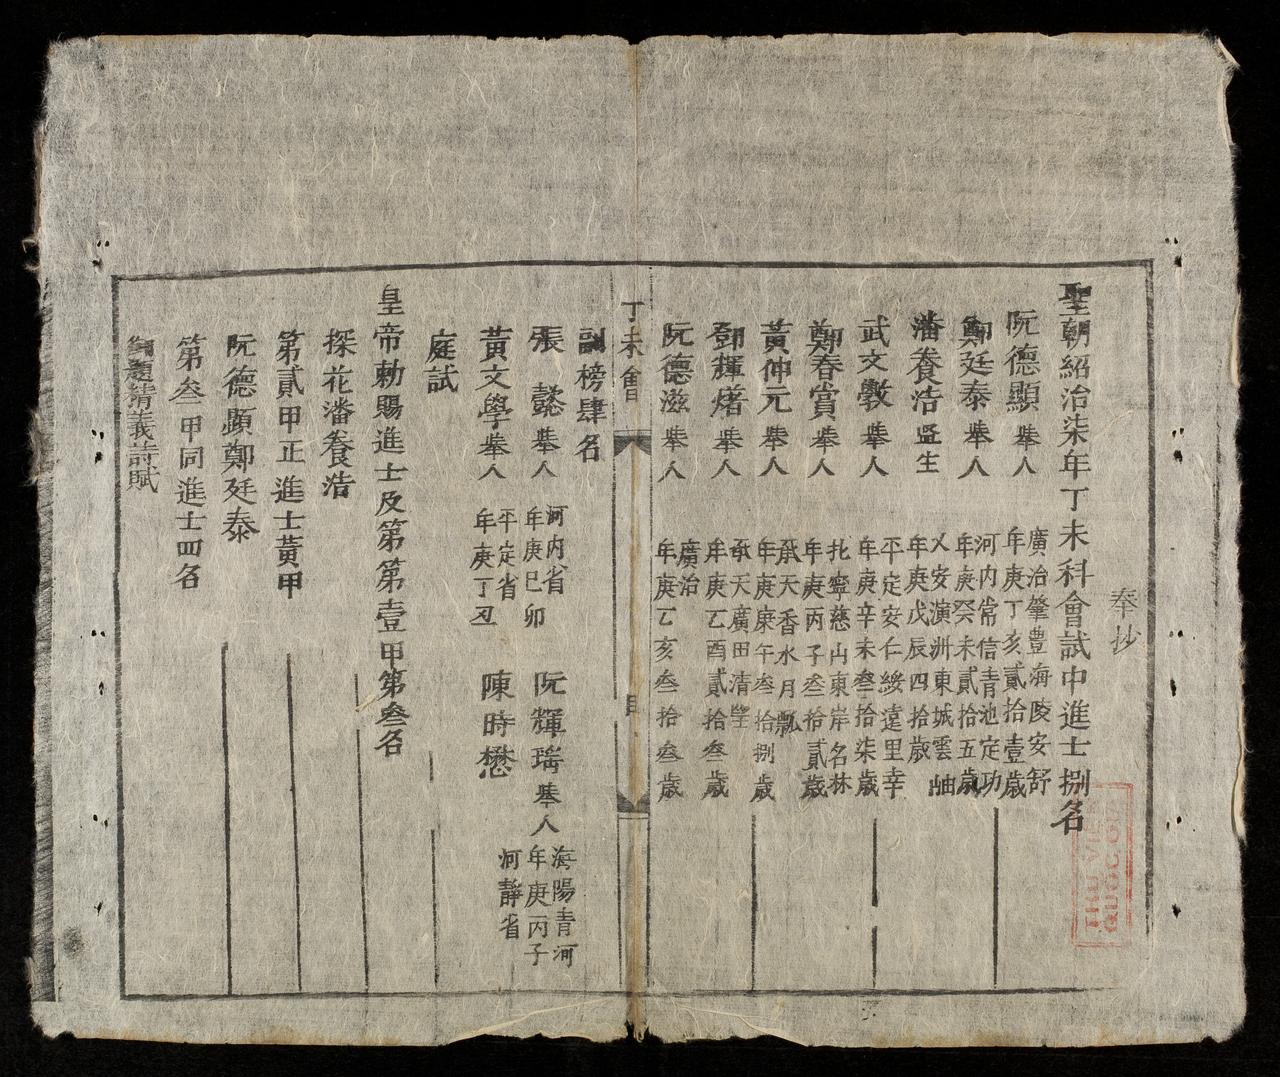 奉抄
聖朝紹治柒年丁未科會試中進士捌名
阮德顯舉人 廣治肇豐海陵安舒
年庚丁亥貳拾壹歲
鄭廷泰舉人 河內常信青池定功
年庚癸未貳拾五歲
潘養浩監生 乂安演洲東城雲岫
年庚戊辰四拾歲
武文斅舉人 平定安仁綏遠里幸
年庚辛未叁拾柒歲
鄭春賞舉人 北寧慈山東岸名林
年庚丙子叁拾貳歲
黃仲元舉人 承天香水月瓢
年庚庚午叁拾捌歲
鄧輝𤏸舉人 承天廣田清
年庚乙酉貳拾叁歲
阮德滋舉人 廣治
年庚乙亥叁拾叁歲
丁未會
目
副榜肆名
張懿舉人 河內省
年庚己卯
阮輝璹舉人 海陽青河
年庚丙子
黃文學舉人 平定省
年庚丁丑
陳時懋 河靜省
庭試
皇帝勅賜進士及第第壹甲第叁名
探花潘養浩
第貳甲正進士黃甲
阮德顯鄭廷泰
第叁甲同進士四名
御題精義詩賦
THƯ VIỆN
QUỐC GIA